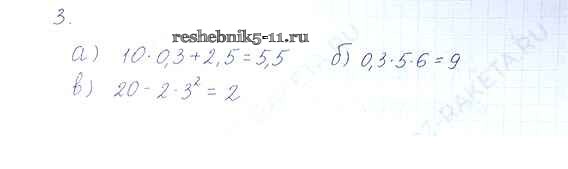 3.
reshebnik5-11.ru
а) 10·0,3+2,5=5,5 б) 0,3·5·6=9
в) 20-2·3²=2
-RAKETA.RU